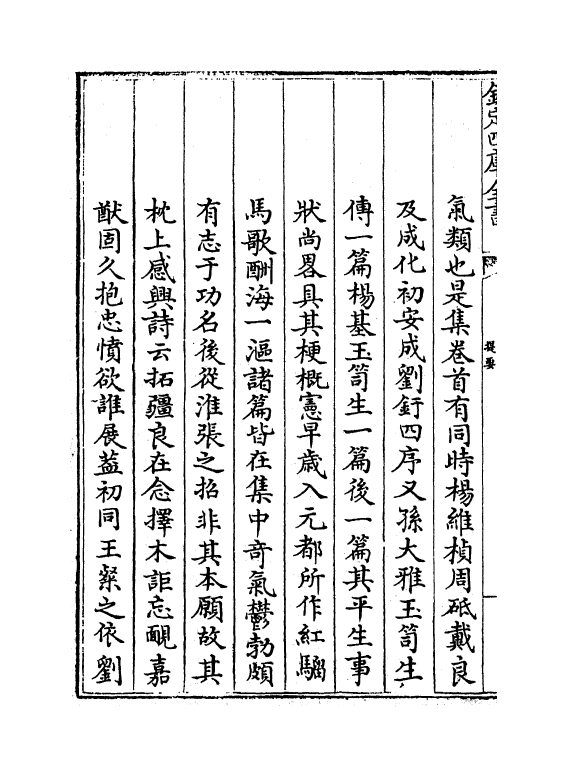 欽定四庫全書
提要
氣類也是集卷首有同時楊維楨周砥戴良
及成化初安成劉釪四序又孫大雅玉笥生
傳一篇楊基玉笥生一篇後一篇其平生事
狀尚畧具其梗概憲早歳入元都所作紅騮
馬歌酬海一漚諸篇皆在集中竒氣鬱勃頗
有志于功名後從淮張之招非其本願故其
枕上感興詩云拓疆良在念擇木詎忘覼嘉
猷固久抱忠憤欲誰展葢初同王粲之依劉